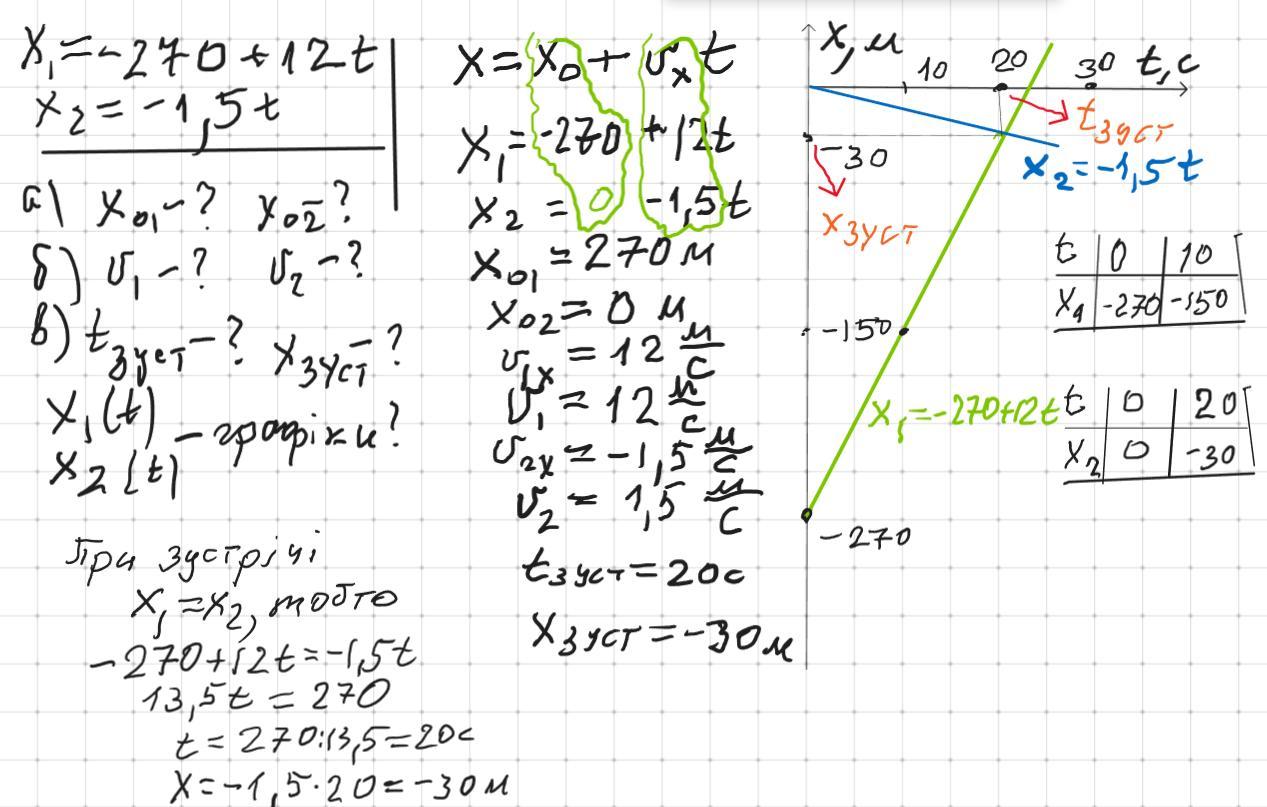 x₁ = -270 + 12t
x₂ = -1,5t
а) x₀₁ - ? x₀₂ - ?
б) υ₁ - ? υ₂ - ?
в) tзуст - ? xзуст - ?
x₁(t)
x₂(t) - графіки?
При зустрічі
x₁ = x₂, тобто
-270 + 12t = -1,5t
13,5t = 270
t = 270:13,5 = 20с
x = -1,5·20 = -30м
x = x₀ + υₓt
x₁ = -270 + 12t
x₂ = 0 -1,5t
x₀₁ = 270м
x₀₂ = 0 м
υ₁ₓ = 12 м/с
υ₁ = 12 м/с
υ₂ₓ = -1,5 м/с
υ₂ = 1,5 м/с
tзуст = 20с
xзуст = -30м
x, м
10 20 30 t, с
tзуст
-30
x₂ = -1,5t
xзуст
-150
x₁ = -270+12t
-270
t 0 10
x₁ -270 -150
t 0 20
x₂ 0 -30